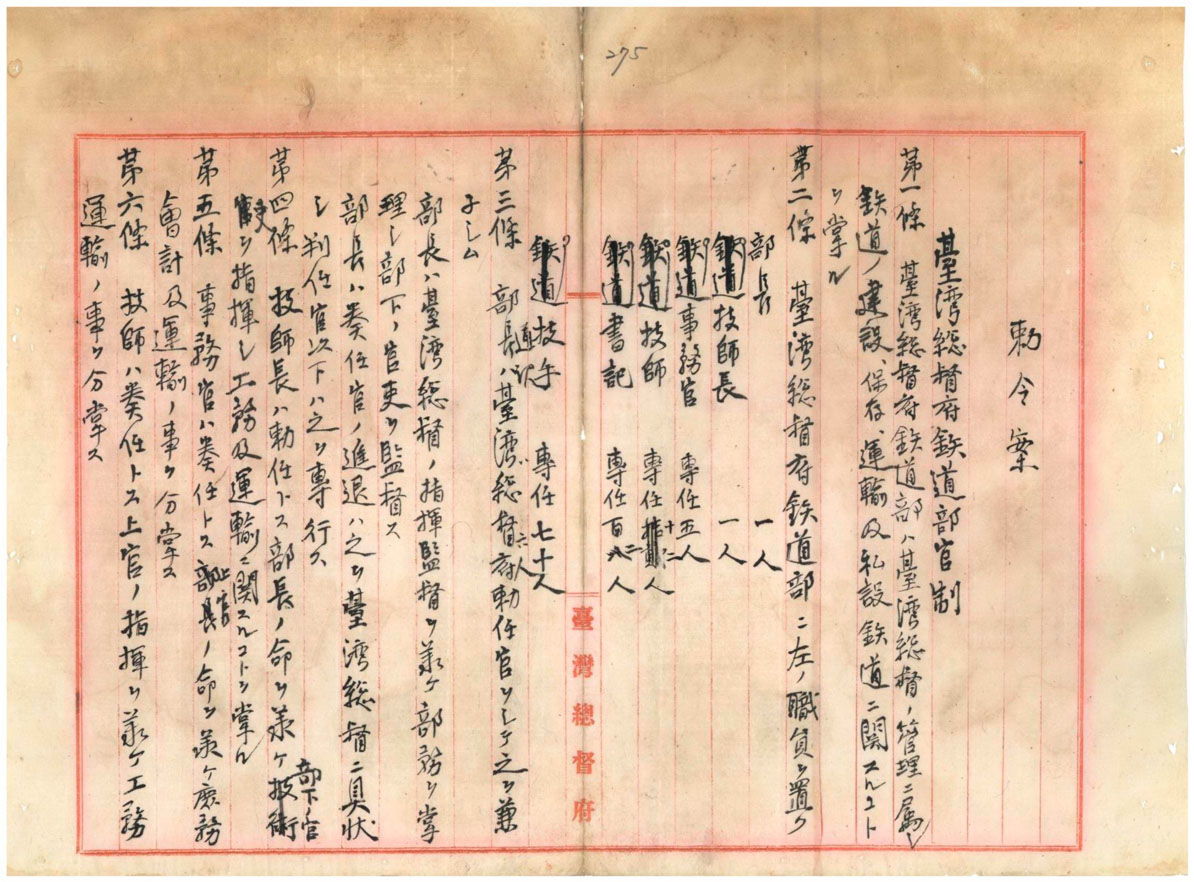 275
勅令案
臺湾総督府鉄道部官制
第一條 臺湾総督府鉄道部ハ臺湾総督ノ管理ニ属シ
鉄道ノ建設、保存、運輸及私設鉄道ニ関スルコト
ヲ掌ル
第二條 臺湾総督府鉄道部ニ左ノ職員ヲ置ク
部長 一人
鉄道技師長 一人
鉄道事務官 専任五人
鉄道技師 専任十二人
鉄道書記 専任百二人
鉄道技手 専任七十六人
臺灣總督府
第三條 部長ハ臺湾総督府勅任官ヲシテ之ヲ兼
子シム
部長ハ臺湾総督ノ指揮監督ヲ承ケ部務ヲ掌
理シ部下ノ官吏ヲ監督ス
部長ハ奏任官ノ進退ハ之ヲ臺湾総督ニ具状
シ判任官以下ハ之ヲ専行ス
第四條 技師長ハ勅任トス部長ノ命ヲ承ケ技術
部下ノ官
ヲ指揮シ工務及運輸ニ関スルコトヲ掌ル
第五條 事務官ハ奏任トス上官ノ命ヲ承ケ庶務
會計及運輸ノ事ヲ分掌ス
第六條 技師ハ奏任トス上官ノ指揮ヲ承ケ工務
運輸ノ事ヲ分掌ス